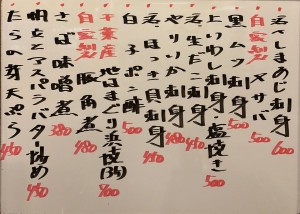 活〆しまあじ刺身 600
自家製〆サバ 500
黒ムツ刺身 500
上いわし刺身・塩焼き 500
活生だこ刺身 480
やりいか刺身 450
活ほっき貝刺身 450
白子ポン酢
千葉産 地はまぐり浜焼(3ヶ) 700
自家製 豚角煮 480
さば味噌煮 380
帆立とアスパラバター炒め 450
たらの芽天ぷら 450